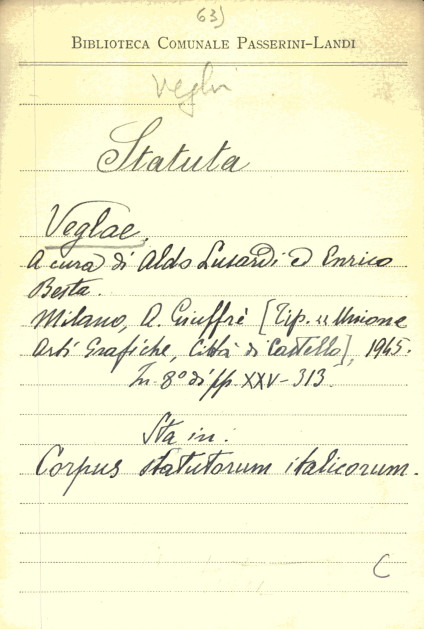 63)
BIBLIOTECA COMUNALE PASSERINI-LANDI
Veglie
Statuta
Veglae,
A cura di Aldo Lusardi e Enrico
Besta.
Milano, A. Giuffrè [Tip. "Unione
Arti Grafiche, Città di Castello], 1945.
In. 8° di pp. XXV-313.
Sta in:
Corpus statutorum italicorum.
C